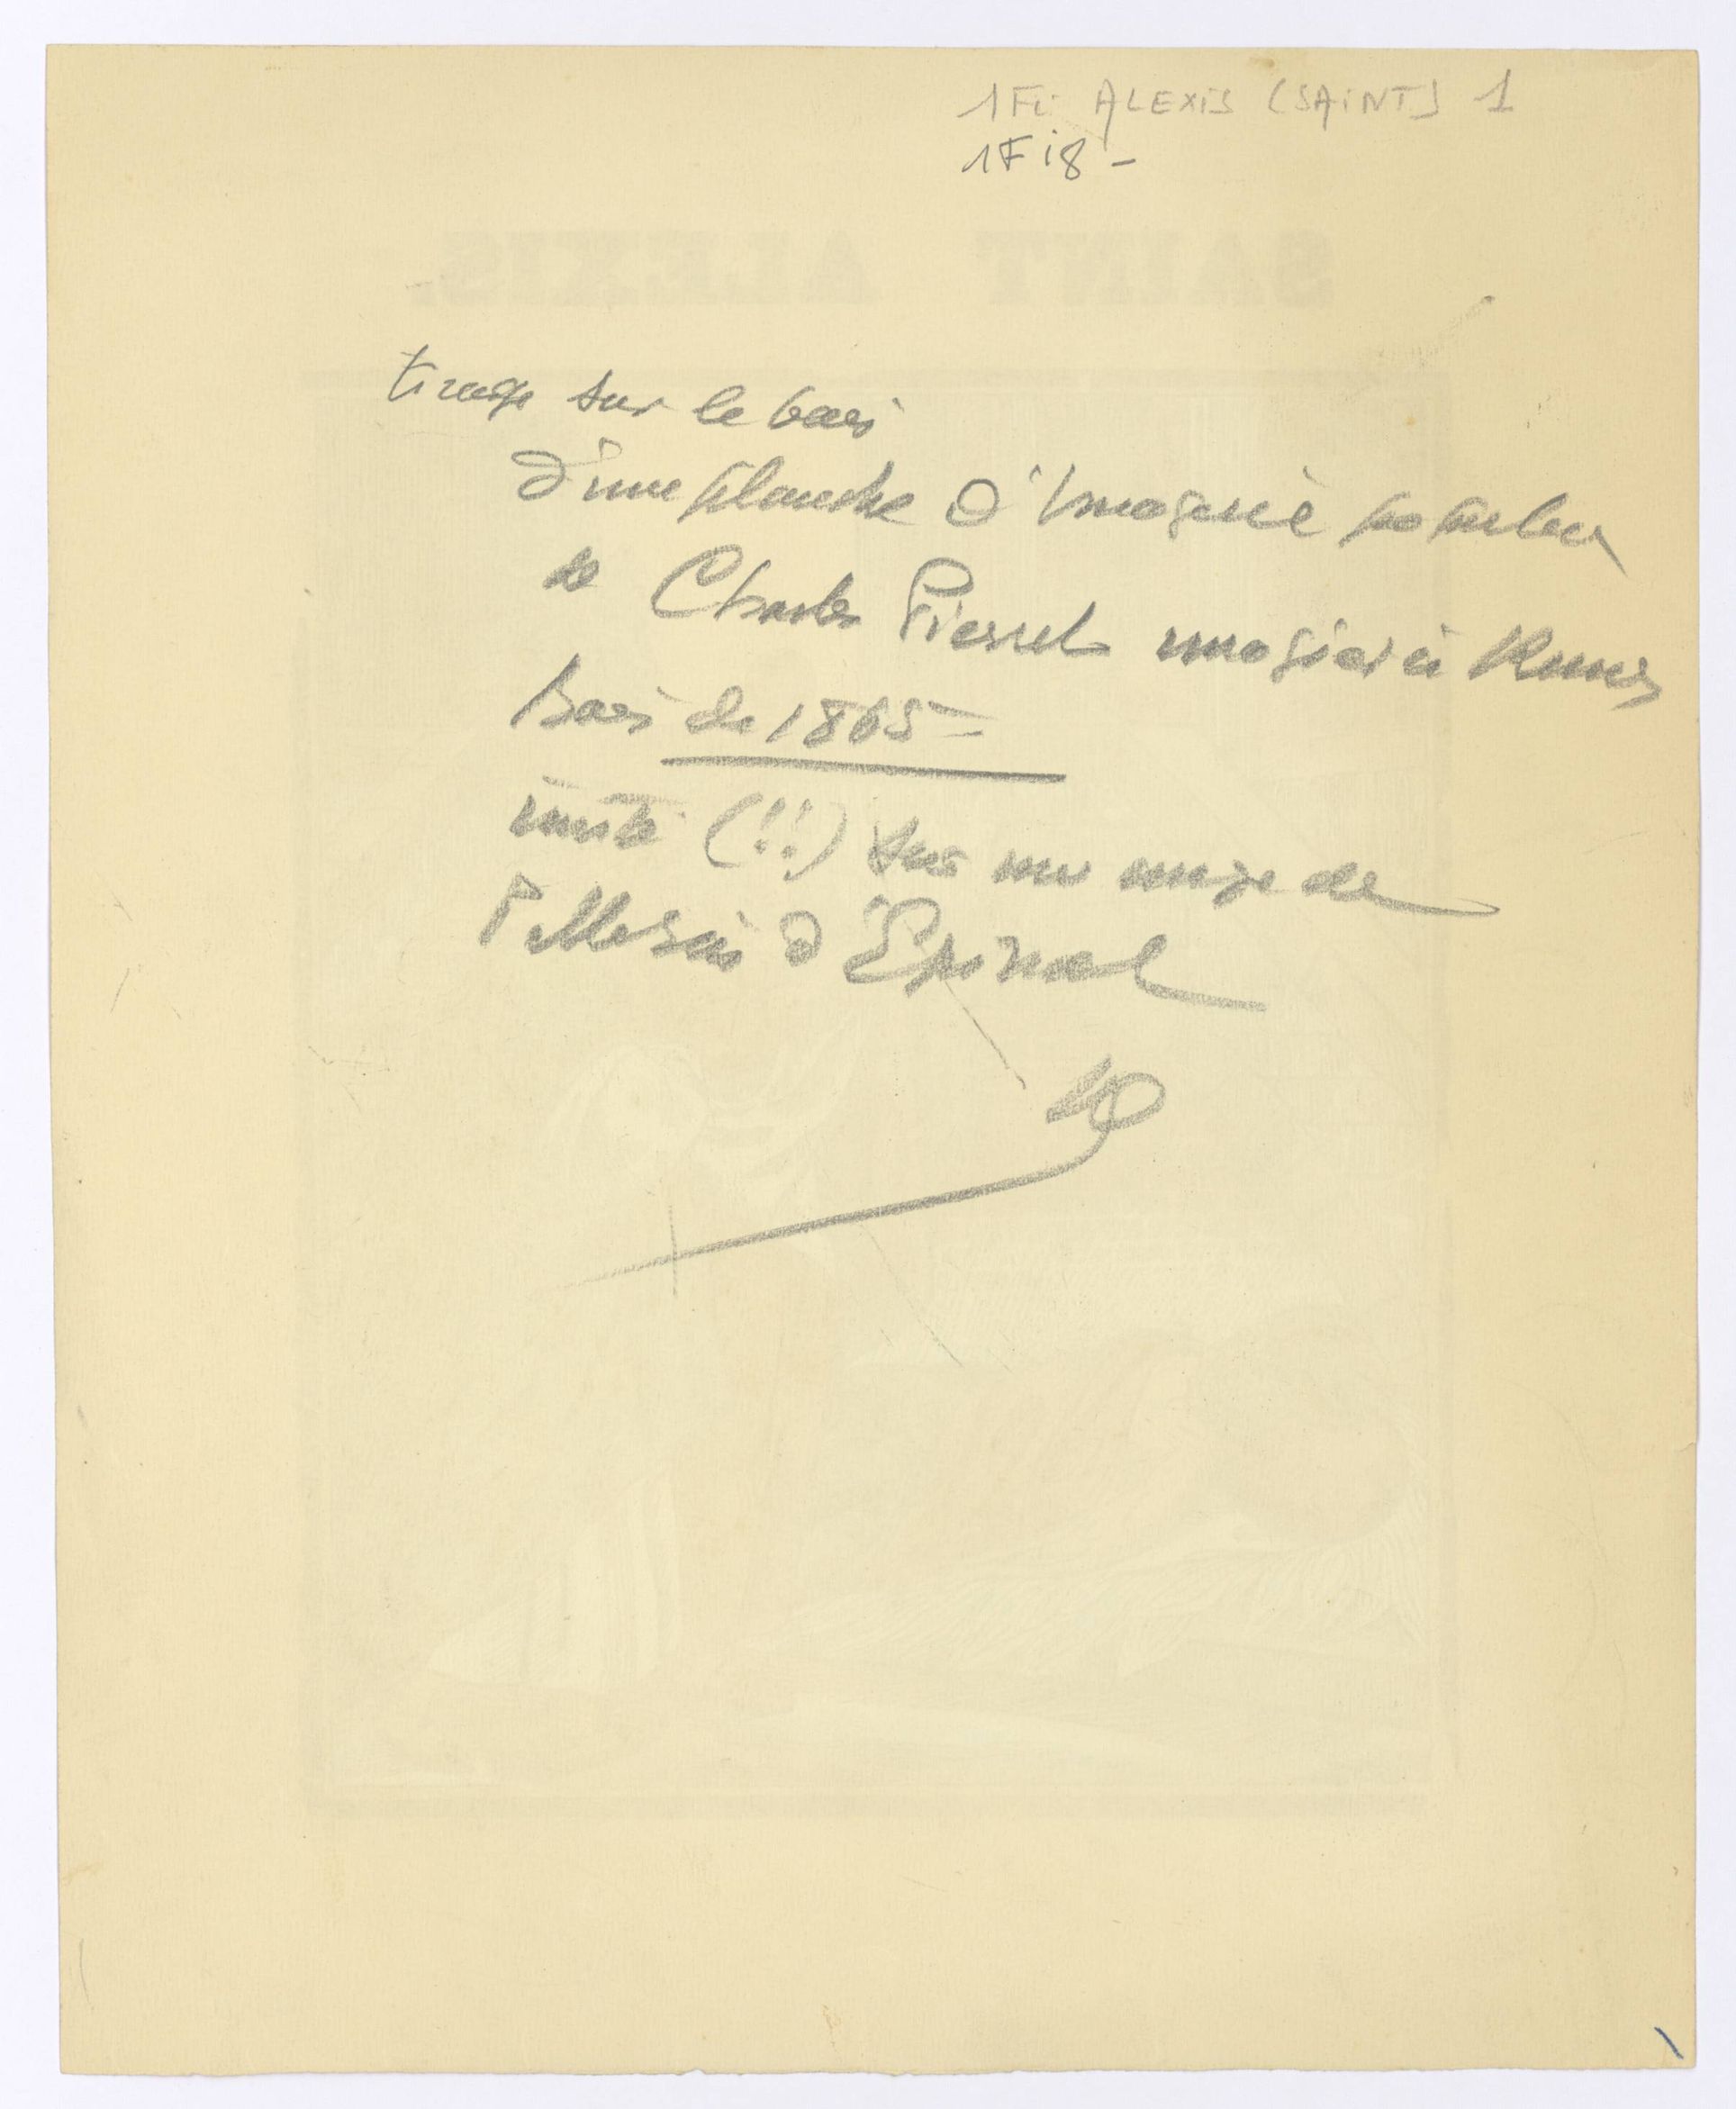 1Fi ALEXIS (SAINT) 1
1Fi8 -
SAINT ALEXIS.
tirage sur le bois
d'une planche d'Imagerie populaire
de Charles Pierret imagier à Rennes
bois de 1865 -
imité (!!) sur une image de
Pellerin d'Épinal